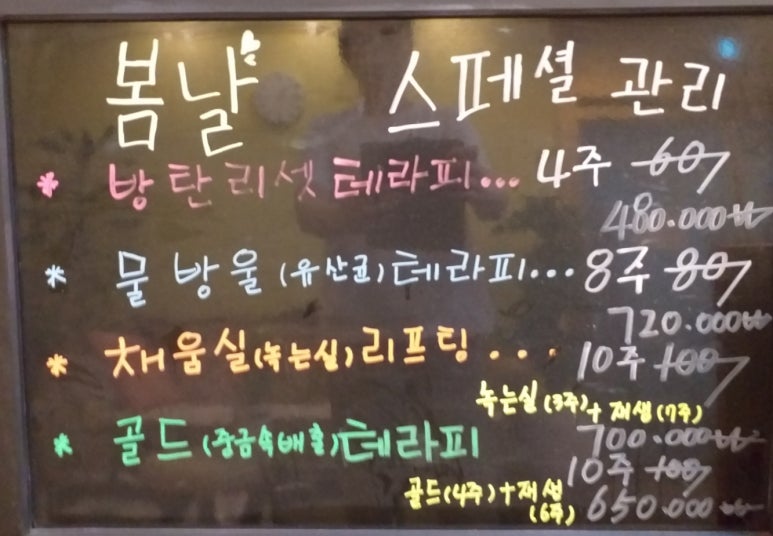 봄날 스페셜 관리
* 방탄리셋테라피... 4주 60
480.000₩
* 물방울(유산균)테라피... 8주 80
720.000₩
* 채움실(녹는실)리프팅... 10주 100
녹는실(3주)+재생(7주)
700.000₩
* 골드(중금속배출)테라피
10주 100
골드(4주)+재생
(6주)
650.000₩